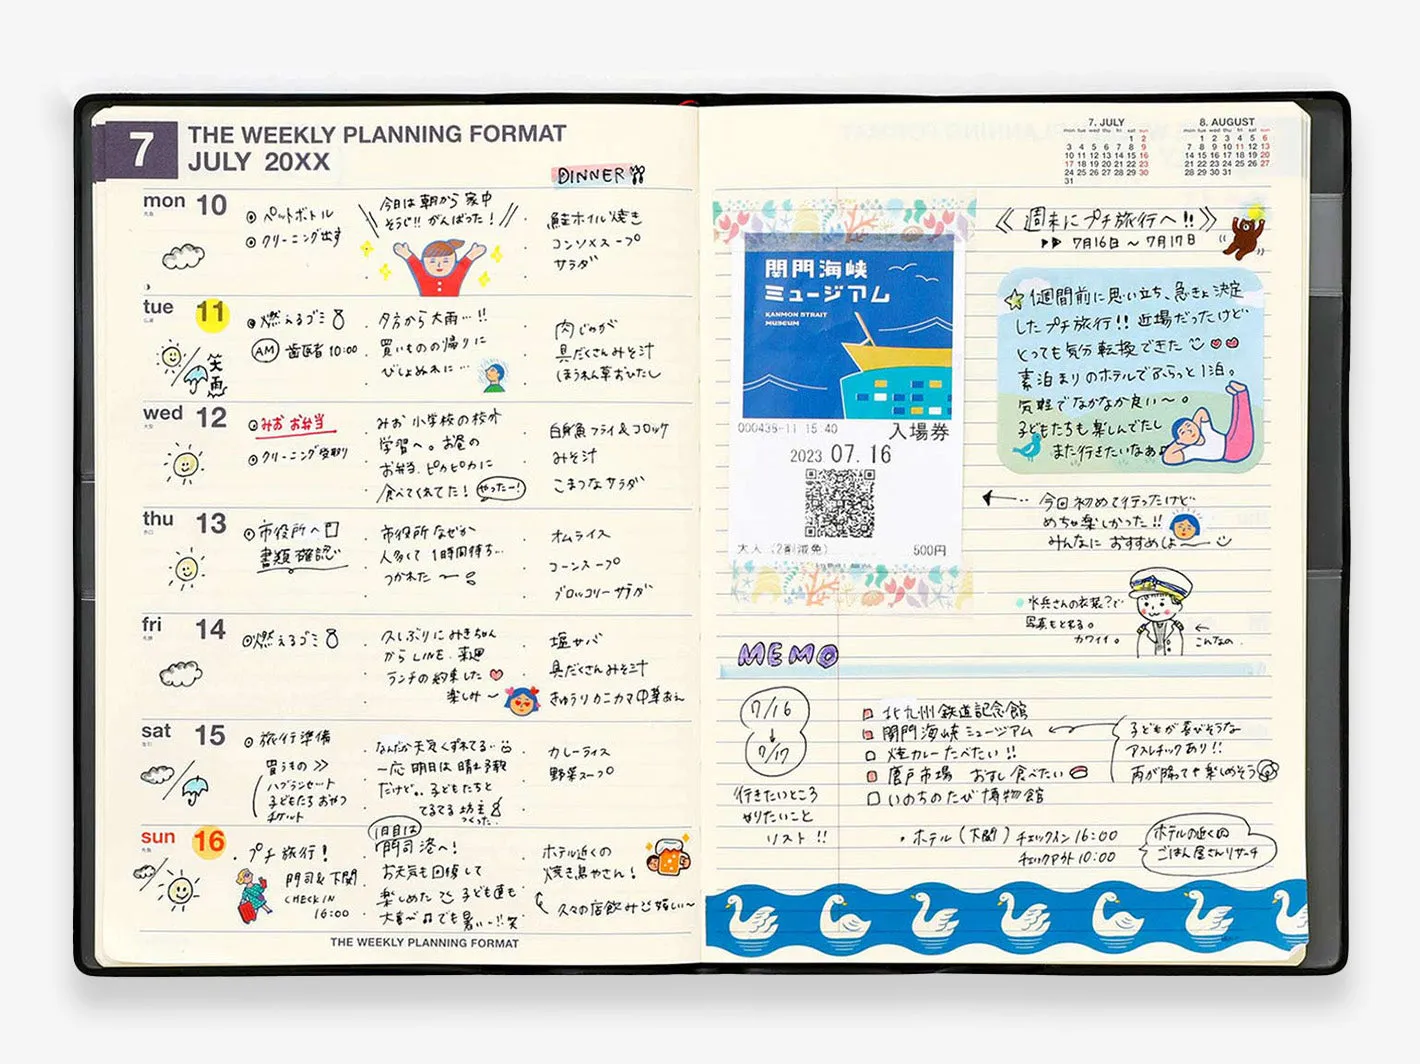 7
THE WEEKLY PLANNING FORMAT
JULY 20XX
DINNER
mon 10
ペットボトル
クリーニング出す
今日は朝から家中
そうじ!! がんばった!
鮭ホイル焼き
コンソメスープ
サラダ
tue 11
燃えるゴミ
AM 歯医者 10:00
笑
夕方から大雨…!!
買いものの帰りに
びしょぬれに…
肉じゃが
具だくさんみそ汁
ほうれん草おひたし
wed 12
みお お弁当
クリーニング受取り
みお 小学校の校外
学習へ。お昼の
お弁当、ピカピカに
食べてくれてた! やったー!
白身魚フライ&コロッケ
みそ汁
こまつなサラダ
thu 13
市役所へ
書類確認
市役所なぜか
人多くて 1時間待ち…
つかれた〜
オムライス
コーンスープ
ブロッコリーサラダ
fri 14
燃えるゴミ
久しぶりに みきちゃん
からLINE. 来週
ランチの約束した
楽しみ〜
塩サバ
具だくさんみそ汁
きゅうりカニカマ中華あえ
sat 15
旅行準備
買うもの >>
ハブラシセット
子どもたち おやつ
チケット
なんだか天気くずれてる…
一応 明日は晴れ予報
だけど。。子どもたちと
てるてる坊主
つくった。
カレーライス
野菜スープ
sun 16
プチ旅行!
門司&下関
CHECK IN
16:00
1日目は
門司港へ!
お天気も回復して
楽しめた 子ども達も
大喜び でも暑い…!! 笑
ホテル近くの
焼き鳥やさん!
久々の店飲み 嬉しい〜
THE WEEKLY PLANNING FORMAT
7. JULY
mon tue wed thu fri sat sun
1 2
3 4 5 6 7 8 9
10 11 12 13 14 15 16
17 18 19 20 21 22 23
24 25 26 27 28 29 30
31
8. AUGUST
mon tue wed thu fri sat sun
1 2 3 4 5 6
7 8 9 10 11 12 13
14 15 16 17 18 19 20
21 22 23 24 25 26 27
28 29 30 31
《 週末にプチ旅行へ!! 》
7月16日 〜 7月17日
関門海峡
ミュージアム
KANMON STRAIT
MUSEUM
000439-11 15:40
入場券
2023 07.16
大人 (2割減免)
500円
1週間前に思い立ち、急きょ決定
したプチ旅行!! 近場だったけど
とっても気分転換できた
素泊まりのホテルでふらっと1泊。
気軽でなかなか良い〜。
子どもたちも楽しんでたし
また行きたいなぁ
今回初めて行ったけど
めちゃ楽しかった!!
みんなに おすすめしよ〜
水兵さんの衣装?で
写真もとれる。
カワイイ。
こんなの
MEMO
7/16
↓
7/17
行きたいところ
やりたいこと
リスト!!
北九州鉄道記念館
関門海峡ミュージアム
焼カレーたべたい!!
唐戸市場 おすし食べたい
いのちのたび博物館
子どもが喜びそうな
アスレチックあり!!
雨が降っても楽しめそう
・ホテル(下関) チェックイン 16:00
チェックアウト 10:00
ホテルの近くの
ごはん屋さんリサーチ